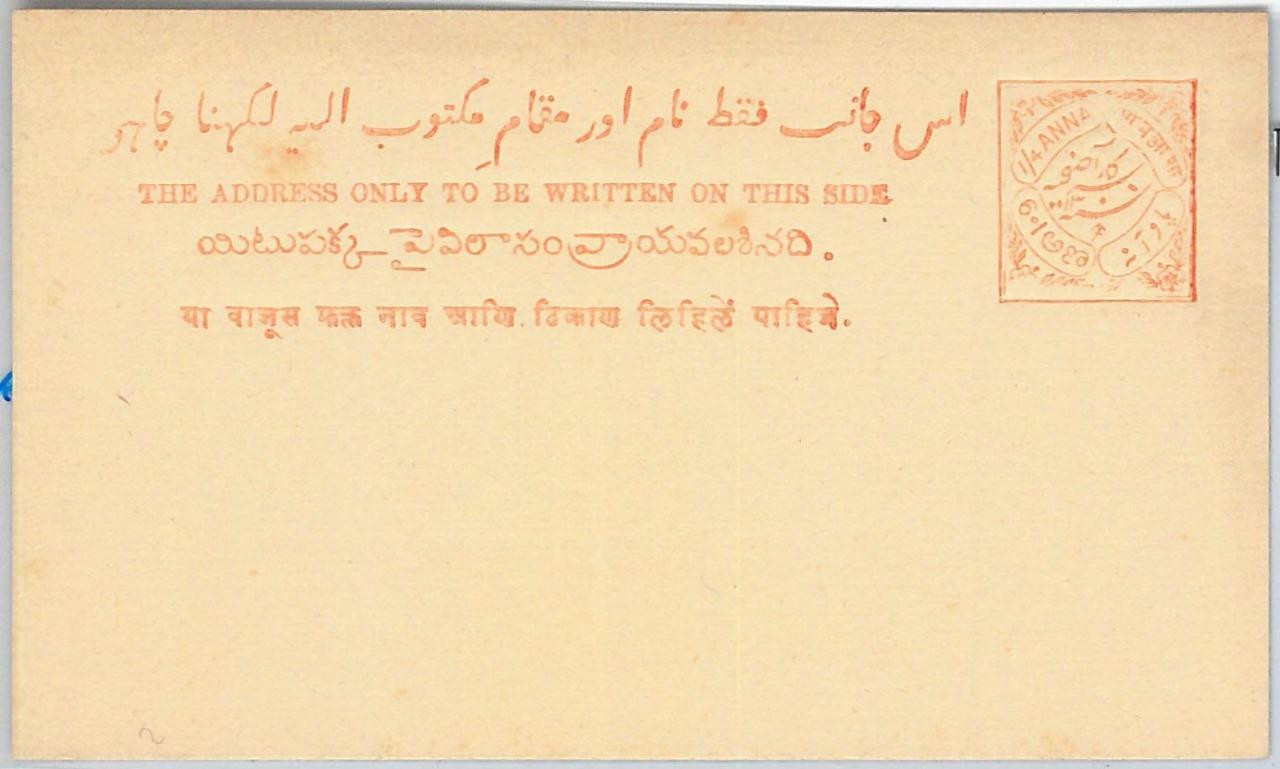 اس جانب فقط نام اور مقامِ مکتوب الیہ لکھنا چاہۓ
THE ADDRESS ONLY TO BE WRITTEN ON THIS SIDE.
యిటుపక్క పైవిలాసంవ్రాయవలశినది.
या वाजूस फक्त नाव आणि ठिकाण लिहिलें पाहिजे.
1/4 ANNA